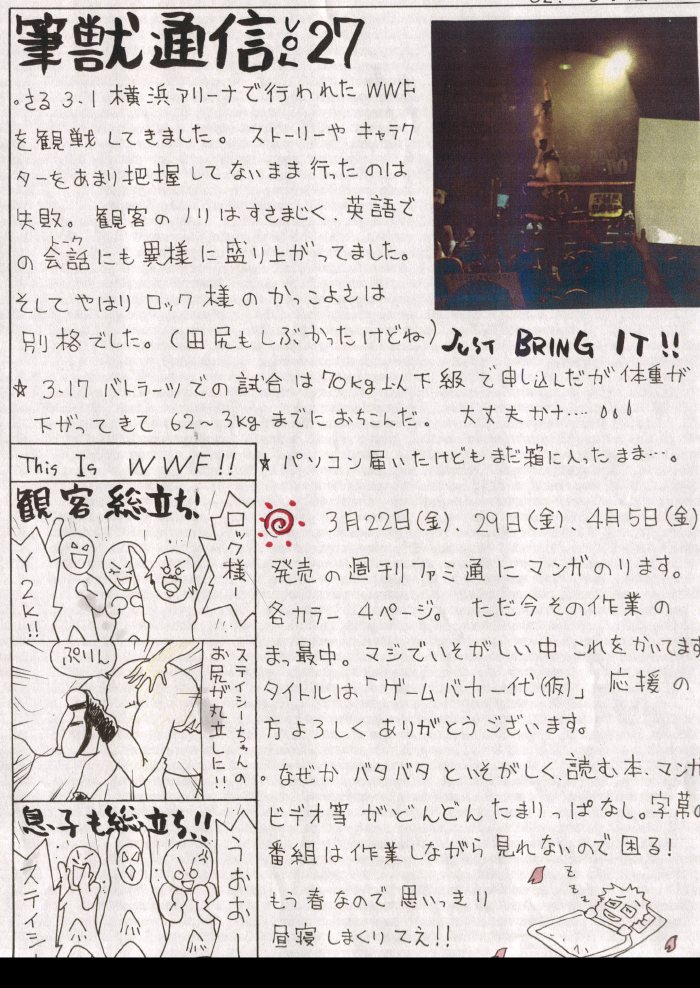 筆獣通信VOL27
。さる 3.1 横浜アリーナで行われた WWF
を観戦してきました。ストーリーや キャラク
ターをあまり把握してないまま行ったのは
失敗。観客のノリはすさまじく、英語で
の会話にも異様に盛り上がってました。
トーク
そしてやはり ロック様のかっこよさは
別格でした。(田尻もしぶかったけどね)
JUST BRING IT!!
☆ 3.17 バトラーツでの試合は70kg以下級で申し込んだが体重が
下がってきて 62〜3kgまでにおちこんだ。大丈夫かナ…
This Is WWF!!
観客総立ち!
ロック様ー
Y2K!!
ぷりん
ステイシーちゃんの
お尻が丸立しに!!
息子も総立ち!!
うおおー
ステイシー
☆パソコン届いたけどもまだ箱に入ったまま…。
3月22日(金)、29日(金)、4月5日(金)
発売の週刊ファミ通にマンガのります。
各カラー 4ページ。ただ今その作業の
まっ最中。マジでいそがしい中 これをかいてます
タイトルは「ゲームバカ一代(仮)」応援の
方よろしくありがとうございます。
。なぜか バタバタといそがしく、読む本、マンガ
ビデオ等がどんどんたまりっぱなし。字幕の
番組は作業しながら見れないので困る!
もう春なので思いっきり
昼寝しまくりてえ!!
zzzz